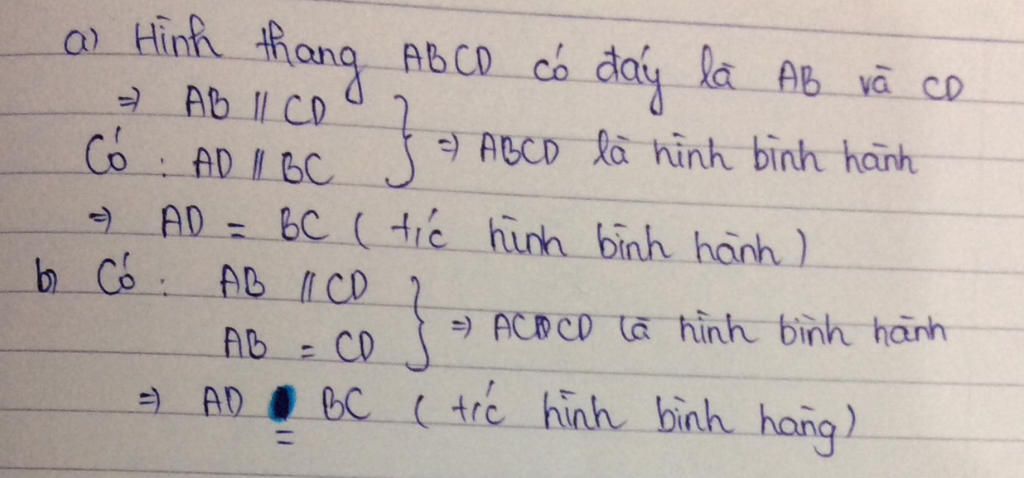 a) Hình thang ABCD có đáy là AB và CD
=> AB // CD
Có : AD // BC } => ABCD là hình bình hành
=> AD = BC ( t/c hình bình hành )
b) Có : AB // CD
AB = CD } => ACDCD là hình bình hành
=> AD = BC ( t/c hình bình hãng )